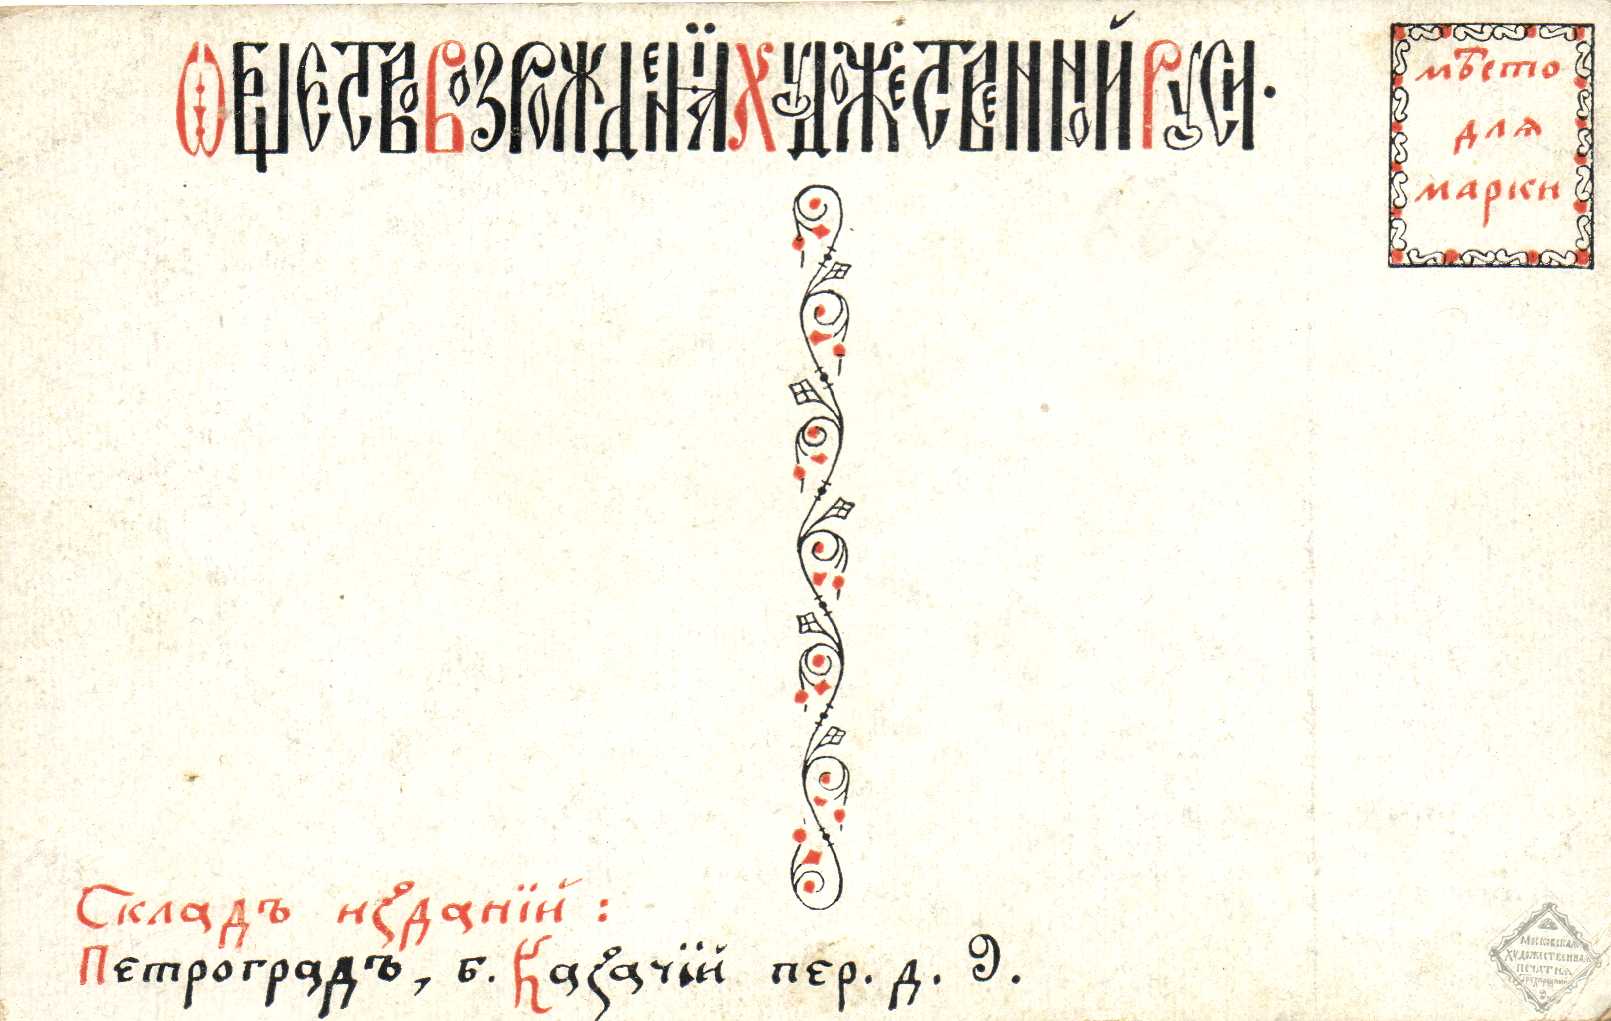 Общество Возрожденїя Художественной Руси.
мѣсто
для
марки
Складъ изданїй:
Петроградъ, б. Казачїй пер. д. 9.
Московская
Художественная
Печатня